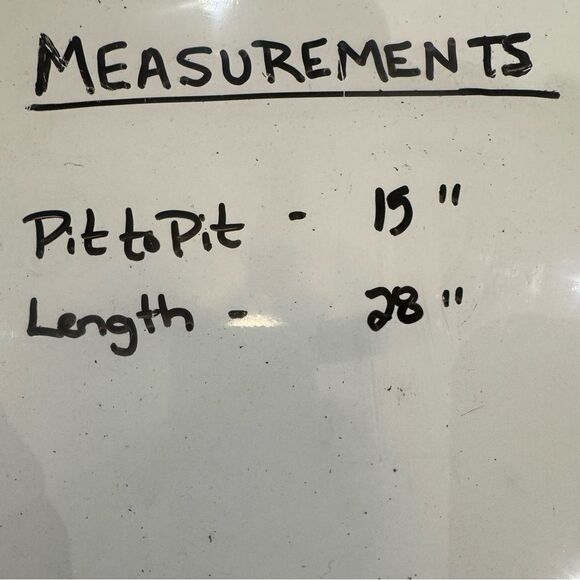 MEASUREMENTS
Pit to Pit - 15 "
Length - 28 "